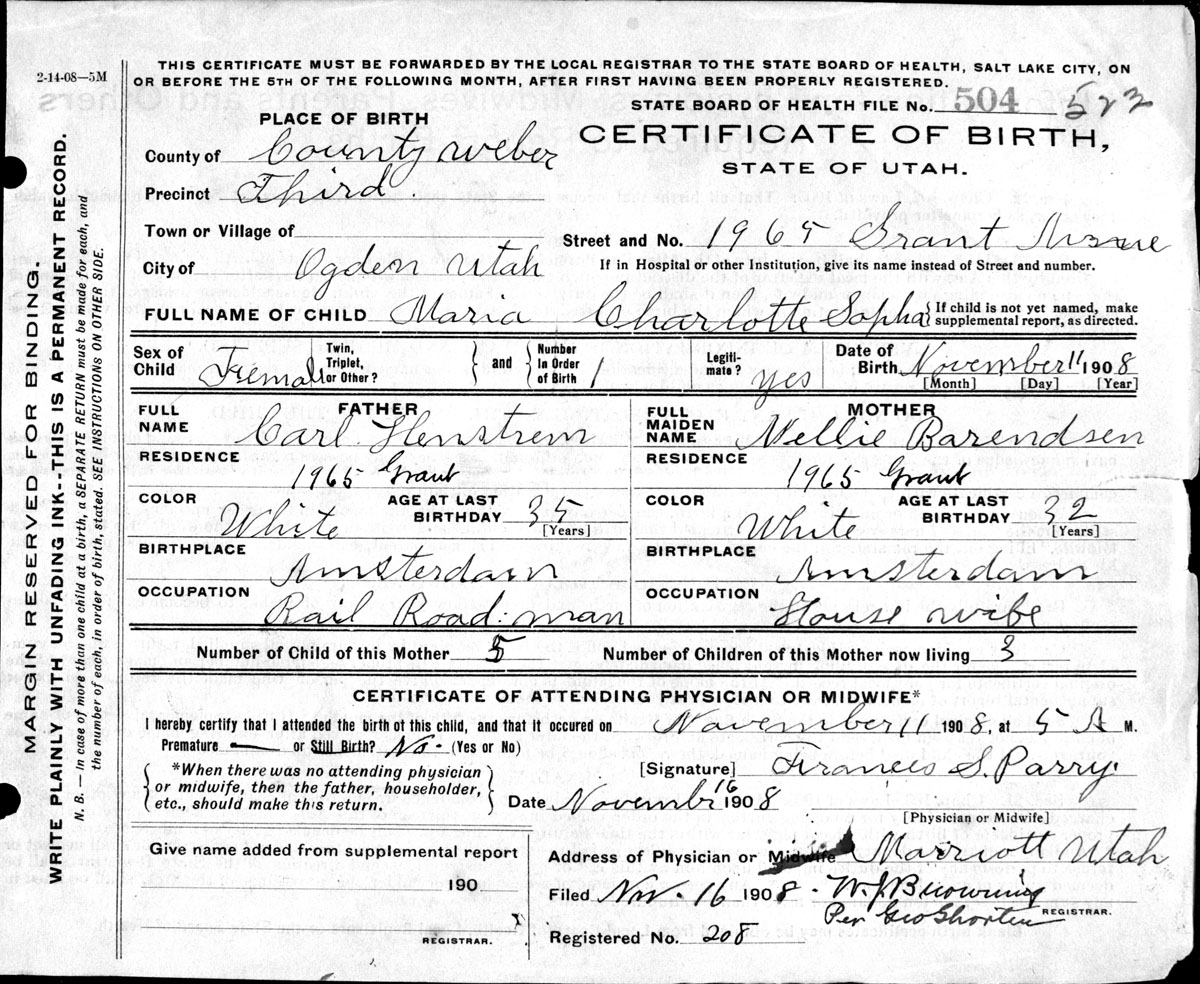 2-14-08—5M
THIS CERTIFICATE MUST BE FORWARDED BY THE LOCAL REGISTRAR TO THE STATE BOARD OF HEALTH, SALT LAKE CITY, ON
OR BEFORE THE 5TH OF THE FOLLOWING MONTH, AFTER FIRST HAVING BEEN PROPERLY REGISTERED.
STATE BOARD OF HEALTH FILE No. 504 523
PLACE OF BIRTH
CERTIFICATE OF BIRTH,
STATE OF UTAH.
County of County Weber
Precinct Third
Town or Village of
Street and No. 1965 Grant
City of Ogden Utah
If in Hospital or other Institution, give its name instead of Street and number.
FULL NAME OF CHILD Maria Charlotte Sopha { If child is not yet named, make supplemental report, as directed.
Sex of Child Femall Twin, Triplet, or Other? } and { Number In Order of Birth 1 Legiti-mate? yes Date of Birth November 11 1908
[Month] [Day] [Year]
FATHER
FULL NAME Carl Henstrem
RESIDENCE 1965 Grant
COLOR White AGE AT LAST BIRTHDAY 35 [Years]
BIRTHPLACE Amsterdam
OCCUPATION Rail Road man
MOTHER
FULL MAIDEN NAME Nellie Barendsen
RESIDENCE 1965 Grant
COLOR White AGE AT LAST BIRTHDAY 32 [Years]
BIRTHPLACE Amsterdam
OCCUPATION House wife
Number of Child of this Mother 5 Number of Children of this Mother now living 3
CERTIFICATE OF ATTENDING PHYSICIAN OR MIDWIFE*
I hereby certify that I attended the birth of this child, and that it occured on November 11 1908, at 5 A M.
Premature — or Still Birth? No. (Yes or No)
{ *When there was no attending physician or midwife, then the father, householder, etc., should make this return. }
[Signature] Francis S. Parry.
Date Novembr 16 1908
[Physician or Midwife]
Give name added from supplemental report
190
REGISTRAR.
Address of Physician or Midwife Marriott Utah
Filed Nov. 16 1908. W. J. Browning
Per Geo Shorten REGISTRAR.
Registered No. 208
MARGIN RESERVED FOR BINDING.
WRITE PLAINLY WITH UNFADING INK--THIS IS A PERMANENT RECORD.
N. B. — In case of more than one child at a birth, a SEPARATE RETURN must be made for each, and
the number of each, in order of birth, stated. SEE INSTRUCTIONS ON OTHER SIDE.